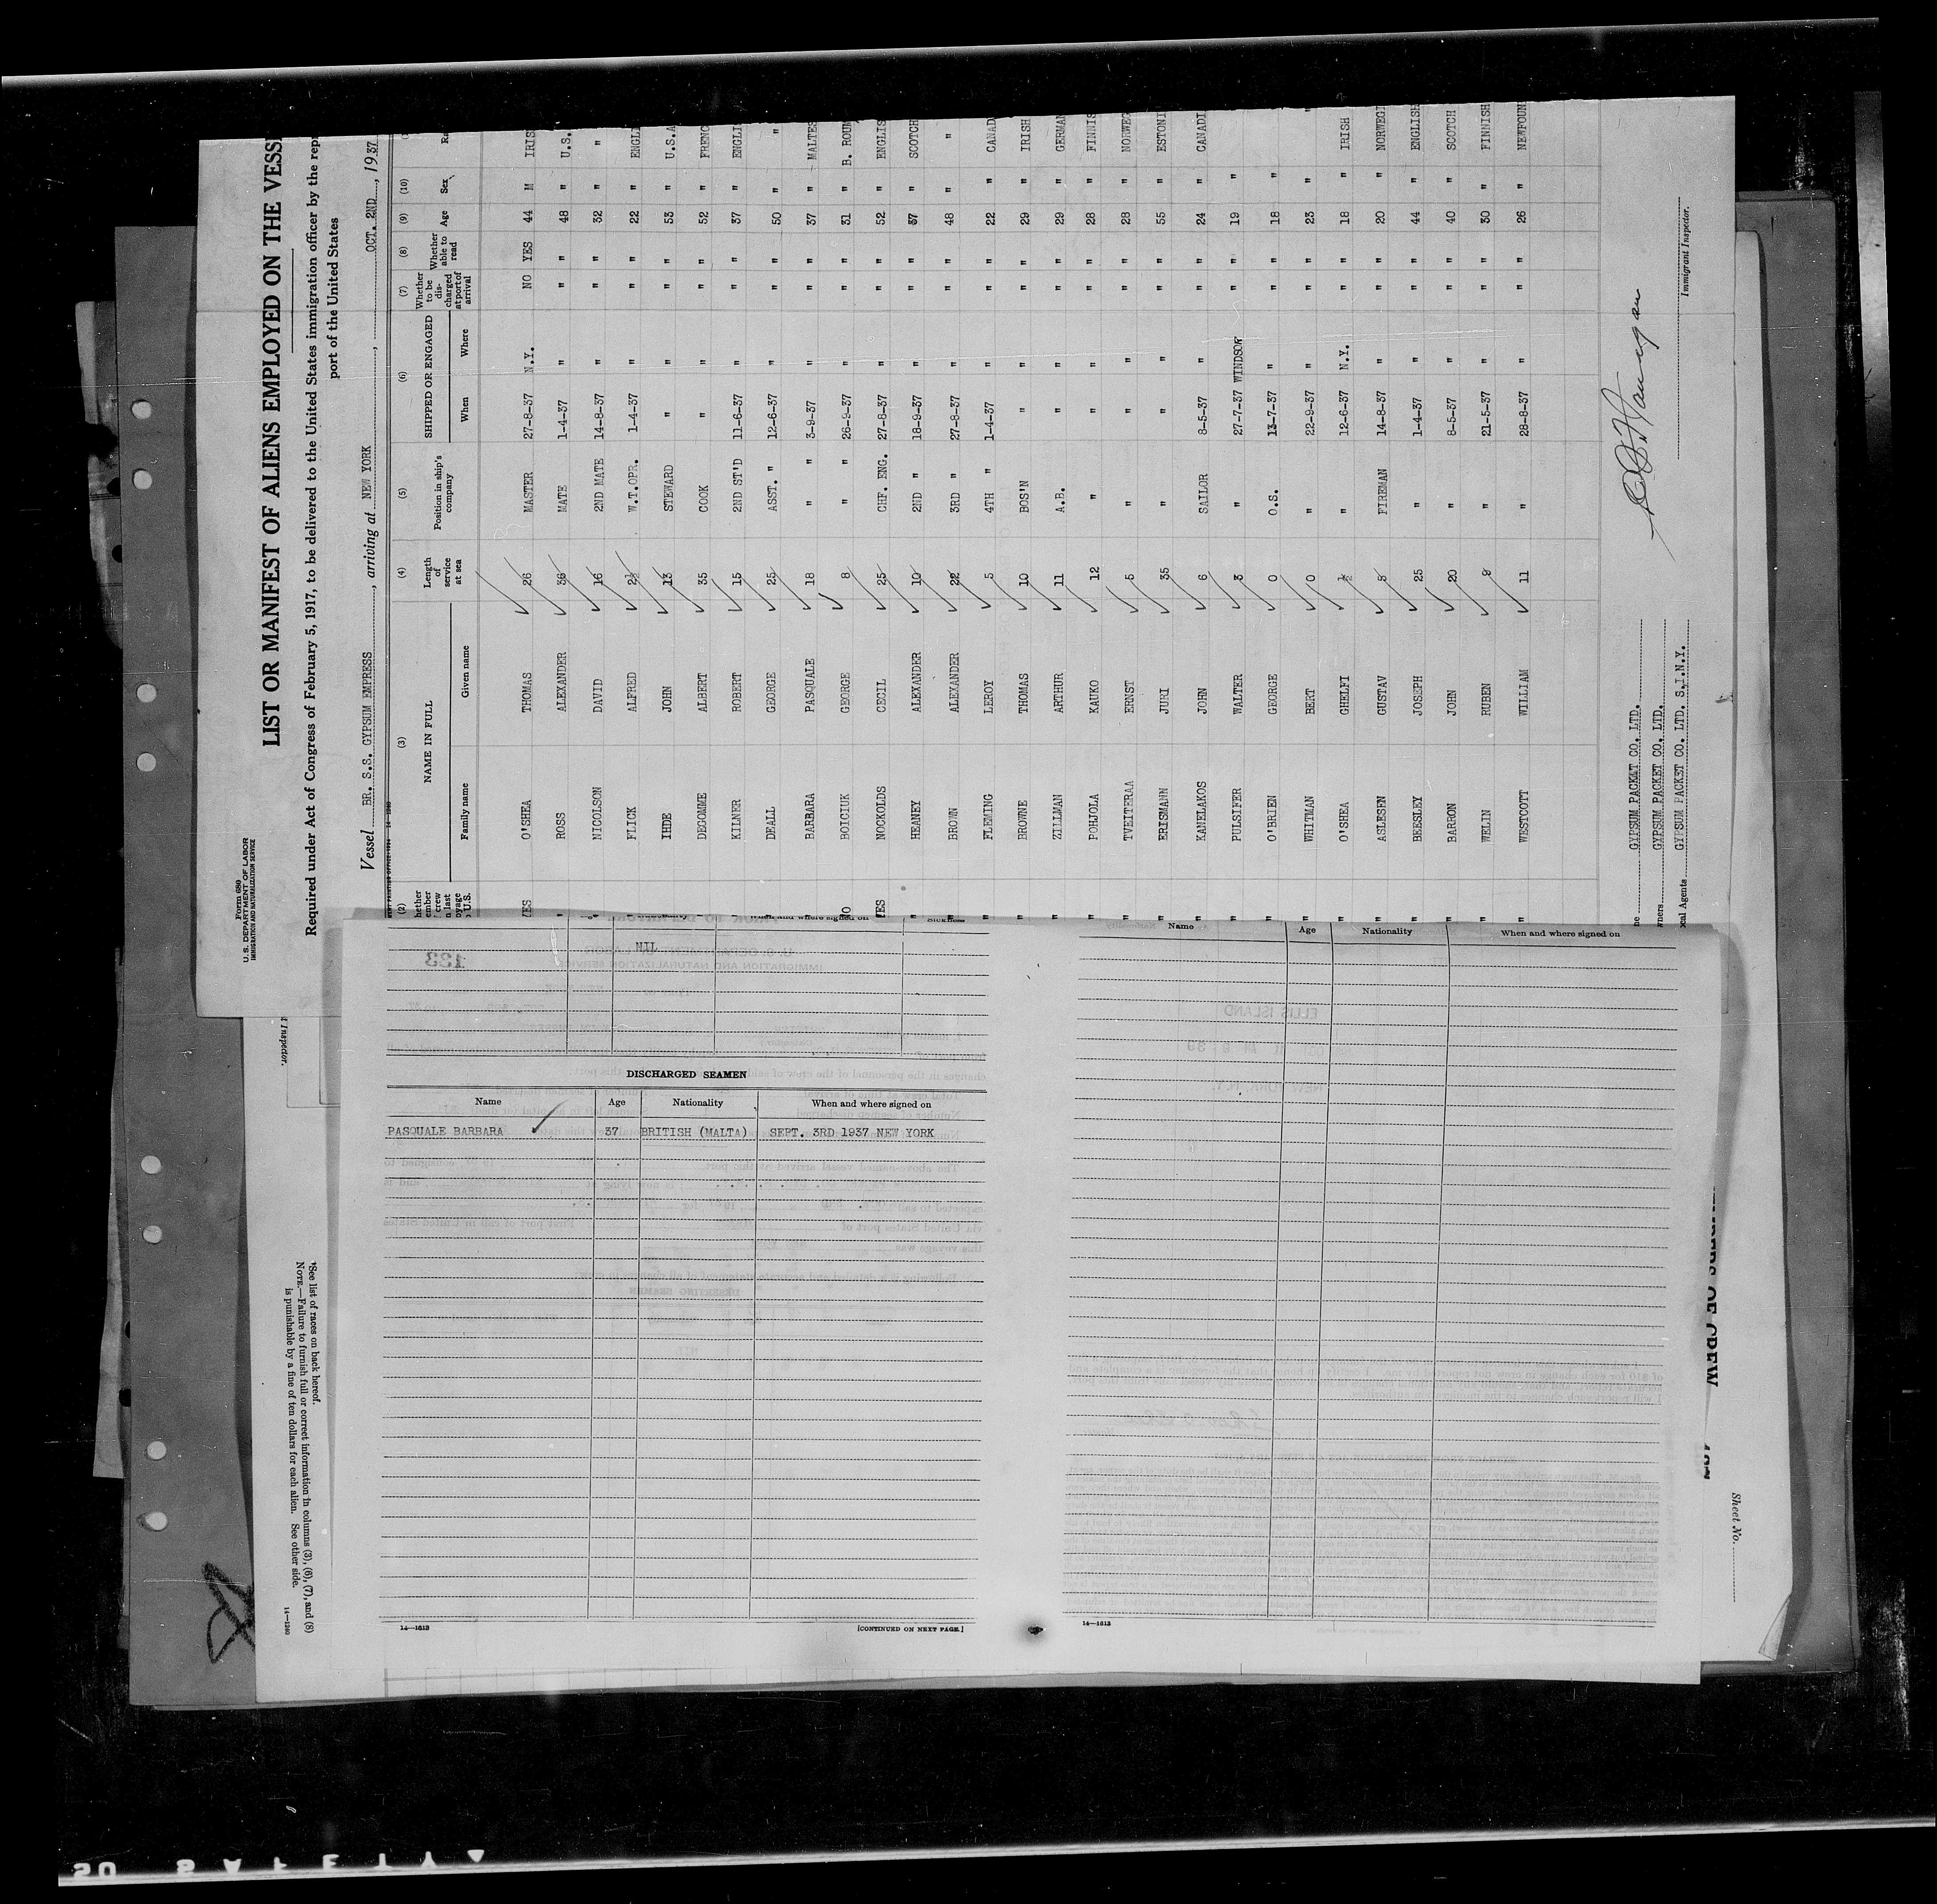 Form 689
U. S. DEPARTMENT OF LABOR
IMMIGRATION AND NATURALIZATION SERVICE
LIST OR MANIFEST OF ALIENS EMPLOYED ON THE VESS
Required under Act of Congress of February 5, 1917, to be delivered to the United States immigration officer by the rep
port of the United States
Vessel BR. S.S. GYPSUM EMPRESS, arriving at NEW YORK, OCT. 2ND, 1937
(2) (3) (4) (5) (6) (7) (8) (9) (10)
NAME IN FULL Length of service at sea Position in ship's company SHIPPED OR ENGAGED Whether to be discharged at port of arrival Whether able to read Age Sex
Family name Given name When Where
YES O'SHEA THOMAS 26 MASTER 27-8-37 N.Y. NO YES 44 M IRIS
" ROSS ALEXANDER 36 MATE 1-4-37 " " " 48 " U.S.
" NICOLSON DAVID 16 2ND MATE 14-8-37 " " " 32 " "
" FLICK ALFRED 2½ W.T.OPR. 1-4-37 " " " 22 " ENGLI
" IHDE JOHN 13 STEWARD " " " " 53 " U.S.A
" DEGOMME ALBERT 35 COOK " " " " 52 " FRENC
" KILNER ROBERT 15 2ND ST'D 11-6-37 " " " 37 " ENGLI
" DEALL GEORGE 25 ASST. " 12-6-37 " " " 50 " "
" BARBARA PASQUALE 18 " " 3-9-37 " " " 37 " MALTES
NO BOICIUK GEORGE 8 " " 26-9-37 " " " 31 " B. ROUM
YES NOCKOLDS CECIL 25 CHF. ENG. 27-8-37 " " " 52 " ENGLIS
" HEANEY ALEXANDER 10 2ND " 18-9-37 " " " 37 " SCOTCH
" BROWN ALEXANDER 22 3RD " 27-8-37 " " " 48 " "
" FLEMING LEROY 5 4TH " 1-4-37 " " " 22 " CANAD
" BROWNE THOMAS 10 BOS'N " " " " 29 " IRISH
" ZILLMAN ARTHUR 11 A.B. " " " " 29 " GERMAN
" POHJOLA KAUKO 12 " " " " " 28 " FINNIS
" TVEITERAA ERNST 5 " " " " " 28 " NORWEG
" ERISMANN JURI 35 " " " " " 55 " ESTONI
" KANELAKOS JOHN 6 SAILOR 8-5-37 " " " 24 " CANADI
" PULSIFER WALTER 3 " 27-7-37 WINDSOR " " 19 "
" O'BRIEN GEORGE 0 O.S. 13-7-37 " " " 18 "
" WHITMAN BERT 0 " 22-9-37 " " " 23 "
" O'SHEA GHELFI ½ " 12-6-37 N.Y. " " 18 " IRISH
" ASLESEN GUSTAV 5 FIREMAN 14-8-37 " " " 20 " NORWEGI
" BEESLEY JOSEPH 25 " 1-4-37 " " " 44 " ENGLISH
" BARRON JOHN 20 " 8-5-37 " " " 40 " SCOTCH
" WELIN RUBEN 9 " 21-5-37 " " " 30 " FINNISH
" WESTCOTT WILLIAM 11 " 28-8-37 " " " 26 " NEWFOUN
GYPSUM PACKET CO. LTD.
GYPSUM PACKET CO. LTD.
GYPSUM PACKET CO. LTD. S.I.N.Y.
Immigrant Inspector.
NIL
DISCHARGED SEAMEN
Name Age Nationality When and where signed on
PASQUALE BARBARA 37 BRITISH (MALTA) SEPT. 3RD 1937 NEW YORK
14—1613
[CONTINUED ON NEXT PAGE.]
Name Age Nationality When and where signed on
14—1613
*See list of races on back hereof.
NOTE.—Failure to furnish full or correct information in columns (3), (6), (7), and (8)
is punishable by a fine of ten dollars for each alien. See other side.
14—1240
Sheet No.
SAFETY